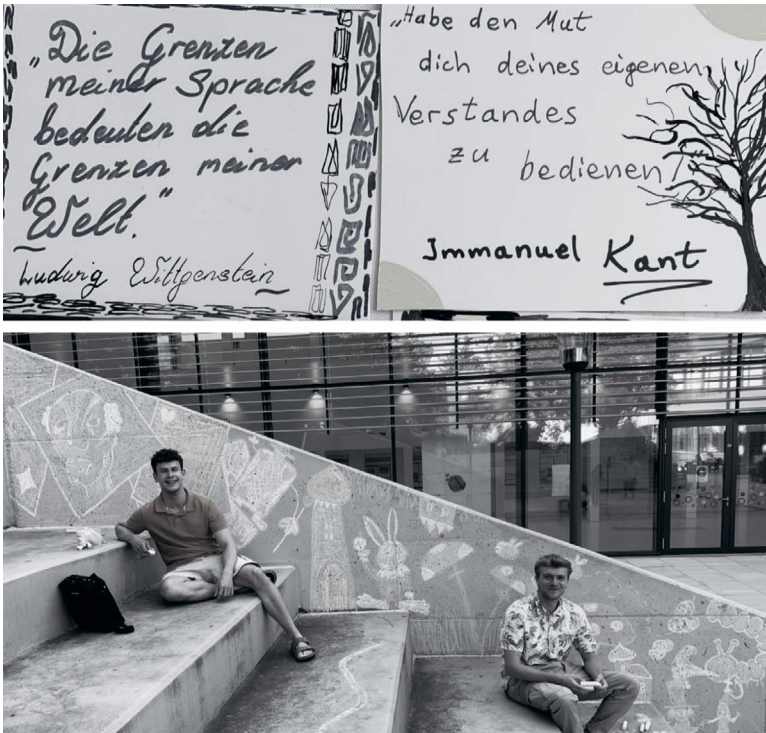 „Die Grenzen
meiner Sprache
bedeuten die
Grenzen meiner
Welt.“
Ludwig Wittgenstein
„Habe den Mut
dich deines eigenen
Verstandes
zu bedienen!
Immanuel Kant